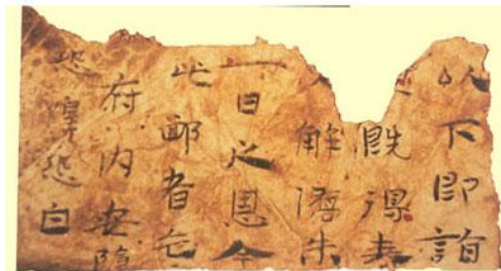 下即詣
既得表
解未
一日之恩今
此者忘
府内安隱
恐惶恐白